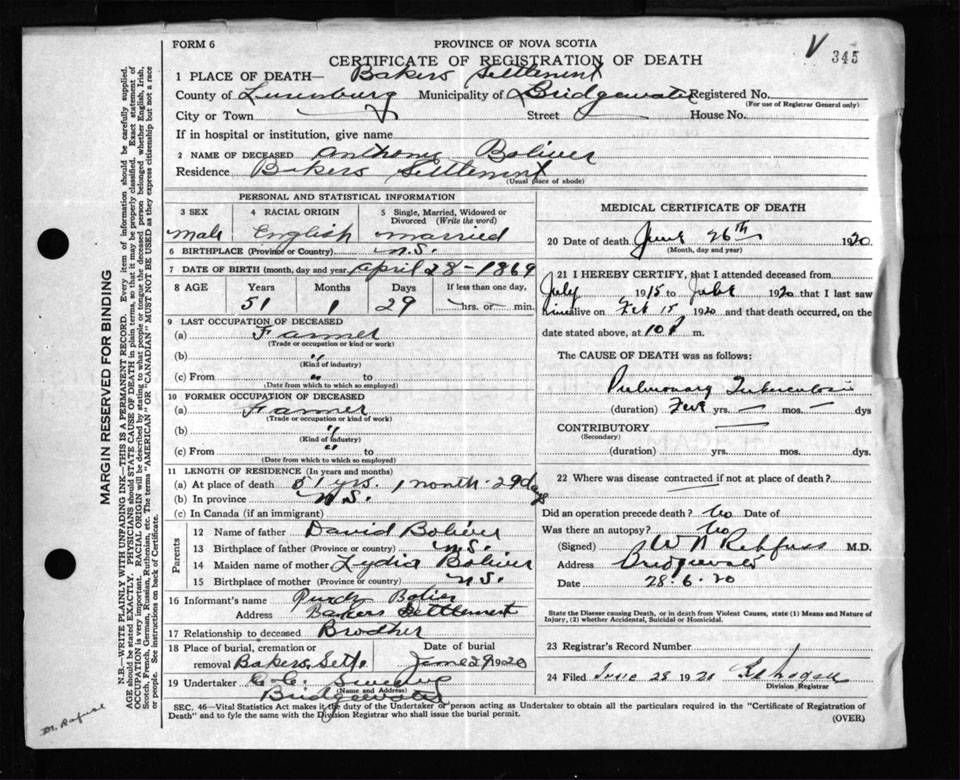 FORM 6
PROVINCE OF NOVA SCOTIA
345
CERTIFICATE OF REGISTRATION OF DEATH
1 PLACE OF DEATH— Bakers Settlement
County of Lunenburg Municipality of Bridgewater Registered No.
(For use of Registrar General only)
City or Town Street House No.
If in hospital or institution, give name
2 NAME OF DECEASED Anthony Boliver
Residence Bakers Settlement
(Usual place of abode)
PERSONAL AND STATISTICAL INFORMATION
3 SEX 4 RACIAL ORIGIN 5 Single, Married, Widowed or Divorced (Write the word)
Male English Married
6 BIRTHPLACE (Province or Country) N.S.
7 DATE OF BIRTH (month, day and year) April 28 - 1869
8 AGE Years Months Days If less than one day,
51 1 29 hrs. or min.
9 LAST OCCUPATION OF DECEASED
(a) Farmer
(Trade or occupation or kind or work)
(b) "
(Kind of industry)
(c) From " to
(Date from which to which so employed)
10 FORMER OCCUPATION OF DECEASED
(a) Farmer
(Trade or occupation or kind of work)
(b) "
(Kind of industry)
(c) From " to
(Date from which to which so employed)
11 LENGTH OF RESIDENCE (In years and months)
(a) At place of death 51 yrs. 1 month - 29 days
(b) In province N.S.
(c) In Canada (if an immigrant)
Parents
12 Name of father David Boliver
13 Birthplace of father (Province or country) N.S.
14 Maiden name of mother Lydia Boliver
15 Birthplace of mother (Province or country) N.S.
16 Informant's name
Address Bakers Settlement
17 Relationship to deceased Brother
18 Place of burial, cremation or Date of burial
removal Bakers Sett. June 29 1920
19 Undertaker C.C.
(Name and Address)
Bridgewater
MEDICAL CERTIFICATE OF DEATH
20 Date of death June 26th 1920
(Month, day and year)
21 I HEREBY CERTIFY, that I attended deceased from
July 1915 to 1920 that I last saw
him alive on Feb 15 1920 and that death occurred, on the
date stated above, at 10 P m.
The CAUSE OF DEATH was as follows:
Pulmonary Tuberculosis
(duration) Five yrs. — mos. — dys
CONTRIBUTORY
(Secondary)
(duration) yrs. mos. dys.
22 Where was disease contracted if not at place of death?
Did an operation precede death? No Date of
Was there an autopsy? No
(Signed) W N Rehfuss M.D.
Address Bridgewater
Date 28.6.20
State the Disease causing Death, or in death from Violent Causes, state (1) Means and Nature of
Injury, (2) whether Accidental, Suicidal or Homicidal.
23 Registrar's Record Number
24 Filed June 28 1920
Division Registrar
SEC. 46—Vital Statistics Act makes it the duty of the Undertaker or person acting as Undertaker to obtain all the particulars required in the "Certificate of Registration of
Death" and to fyle the same with the Division Registrar who shall issue the burial permit.
(OVER)
MARGIN RESERVED FOR BINDING
N.B.—WRITE PLAINLY WITH UNFADING INK—THIS IS A PERMANENT RECORD. Every item of information should be carefully supplied.
AGE should be stated EXACTLY. PHYSICIANS should STATE CAUSE OF DEATH in plain terms, so that it may be properly classified. Exact statement of
OCCUPATION is very important. RACIAL ORIGIN will be described by stating to what people or tongue the deceased person belonged whether English, Irish,
Scotch, French, German, Russian, Ruthenian, etc. The terms "AMERICAN" OR "CANADIAN" MUST NOT BE USED as they express citizenship but not a race
or people. See instructions on back of Certificate.
Dr. Rafuse